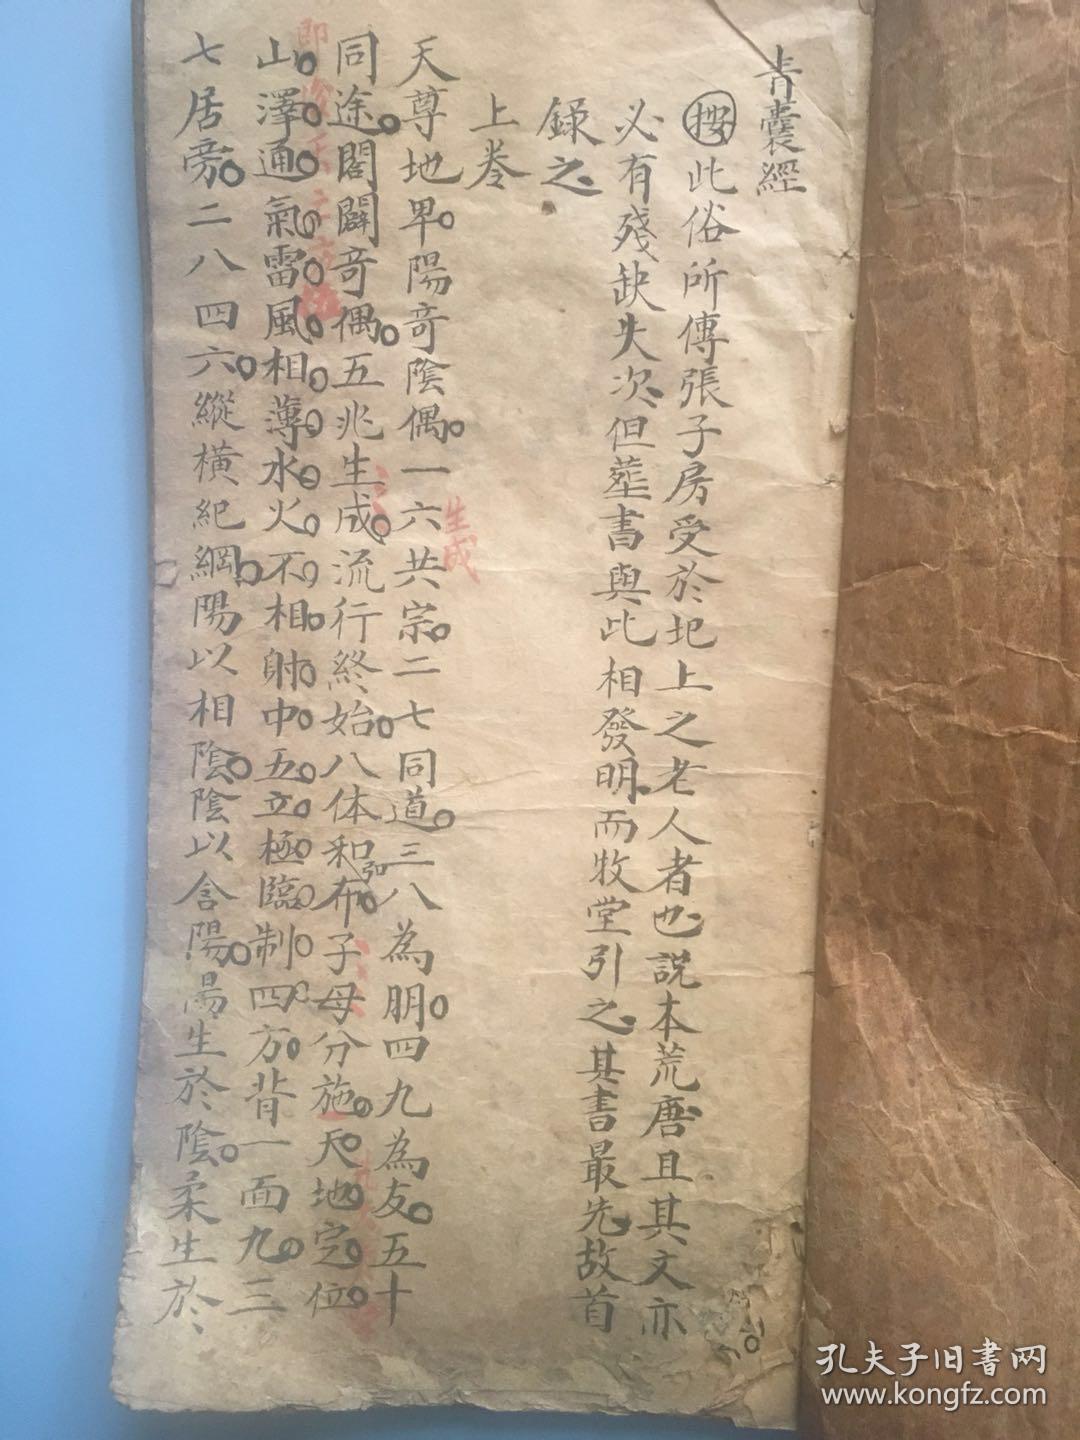 青囊經
按此俗所傳張子房受於圯上之老人者也說本荒唐且其文亦
必有殘缺失次但塟書與此相發明而牧堂引之其書最先故首
錄之
上卷
天尊地卑陽奇陰偶一六共宗二七同道三八為朋四九為友五十
生成
同途闔闢奇偶五兆生成流行終始八体和布子母分施天地定位
弘
山澤通氣雷風相薄水火不相射中五立極臨制四方背一面九三
七居旁二八四六縱橫紀綱陽以相陰陰以含陽陽生於陰柔生於
孔夫子旧书网
www.kongfz.com